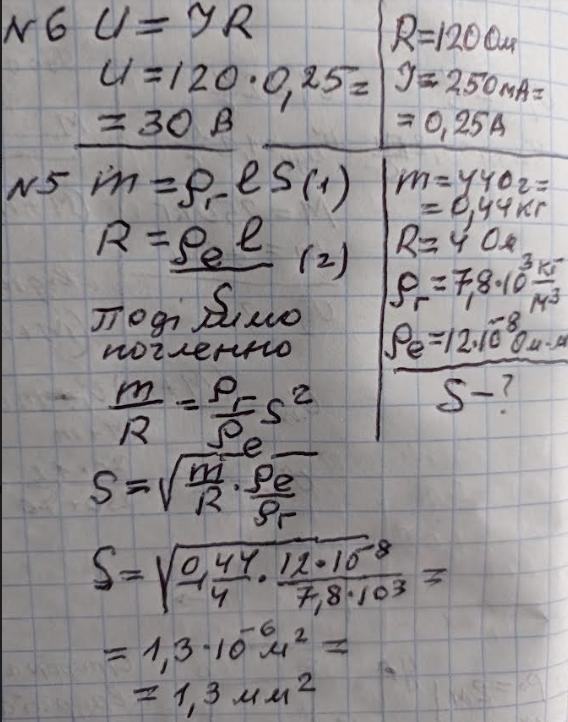 N6 U = IR
U = 120·0,25 =
= 30 В
R = 120 Ом
I = 250 мА =
= 0,25 А
N5 m = ρг l S (1)
R = ρe l / S (2)
Поділимо
почленно
m/R = ρг/ρe S²
S = √(m/R · ρe/ρг)
S = √(0,44/4 · 12·10⁻⁸/7,8·10³) =
= 1,3·10⁻⁶ м² =
= 1,3 мм²
m = 440 г =
= 0,44 кг
R = 4 Ом
ρг = 7,8·10³ кг/м³
ρe = 12·10⁻⁸ Ом·м
S - ?